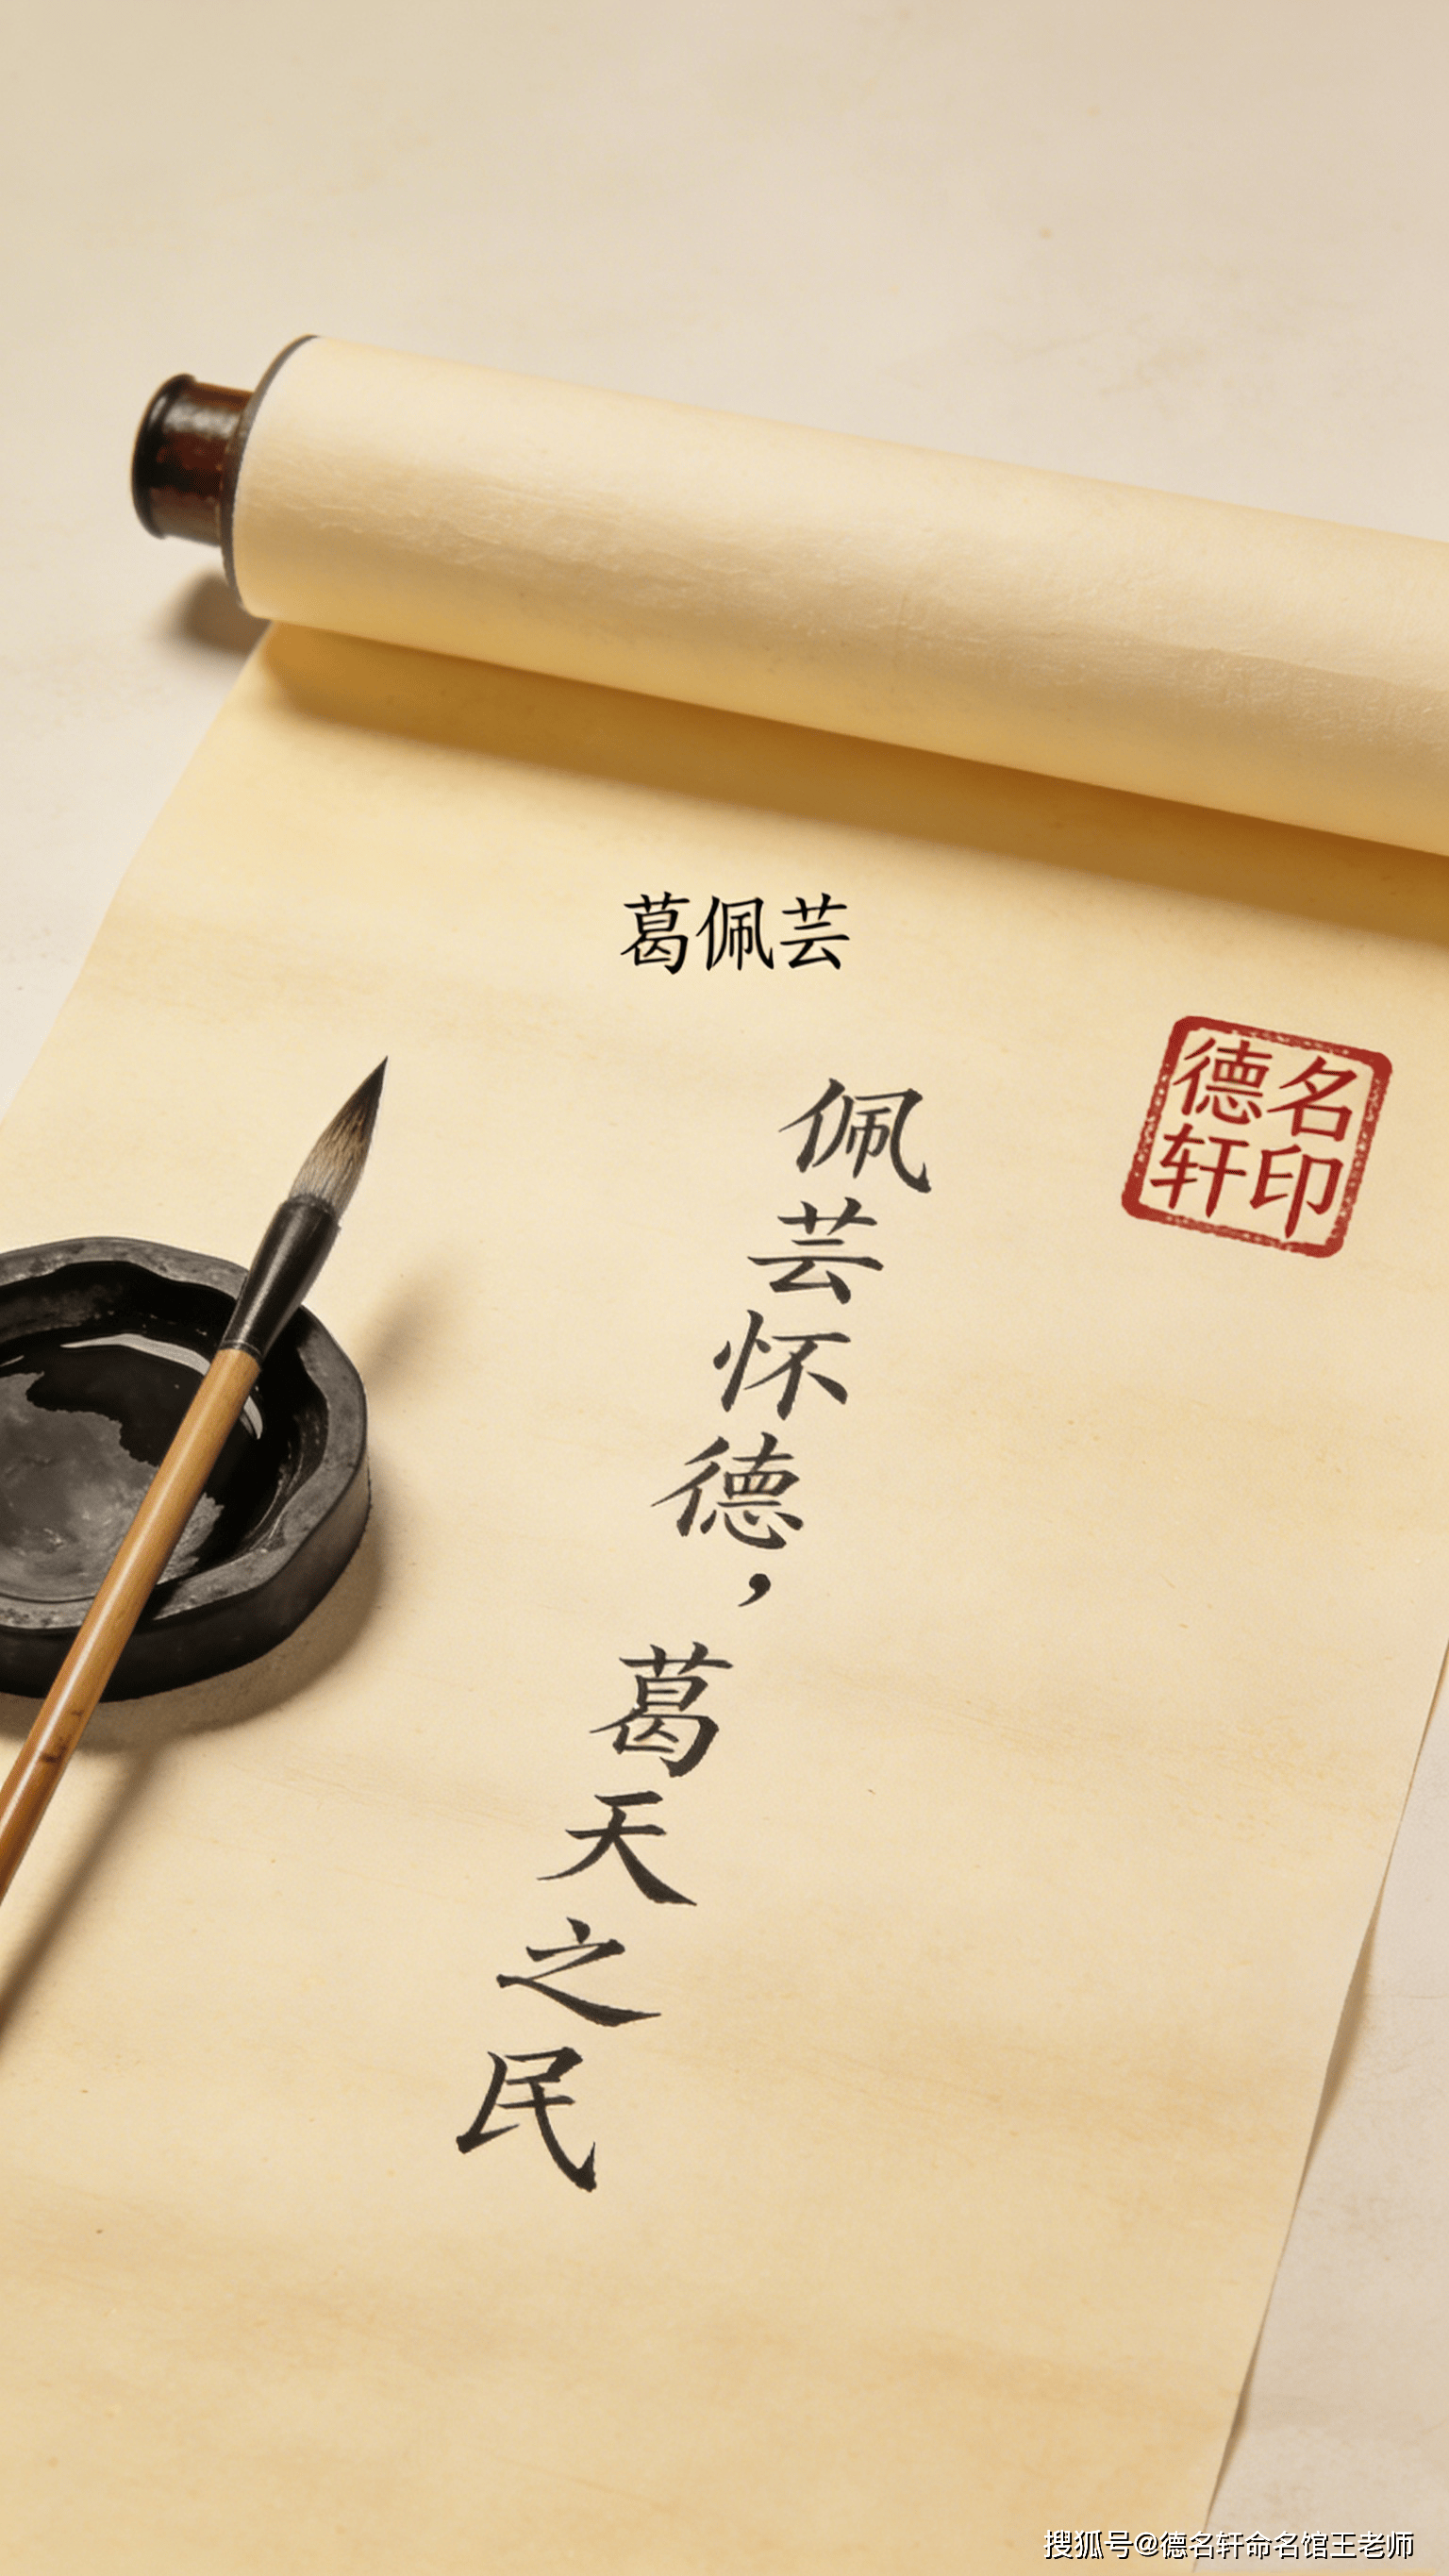 葛佩芸
佩芸怀德，葛天之民
德名
轩印
搜狐号@德名轩命名馆王老师